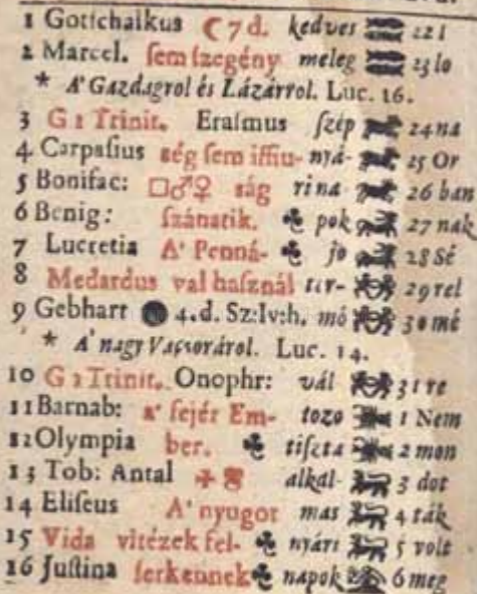 1 Gotſchalkus ☾ 7 d. kedves 22 i
2 Marcel. ſem ſzegény meleg 23 lo
* A' Gazdagrol és Lázárrol. Luc. 16.
3 G 1 Trinit. Eraſmus ſzép 24 na
4 Carpaſius ség ſem iffiu- nyá- 25 Or
5 Bonifac: □♂♀ ság rina 26 ban
6 Benig: ſzánatik. ♣ pok 27 nak
7 Lucretia A' Penná- ♣ jo 28 Sé
8 Medardus val haſznál ter- 29 rel
9 Gebhart ● 4. d. Sz:Iv:h. mó 30 mé
* A' nagy Vacsorárol. Luc. 14.
10 G 2 Trinit. Onophr: vál 31 re
11 Barnab: a' fejér Em- tozo 1 Nem
12 Olympia ber. ♣ tiſzta 2 mon
13 Tob: Antal alkal- 3 dot
14 Eliſeus A' nyugot mas 4 ták
15 Vida vitézek fel- ♣ nyári 5 volt
16 Juſtina ſerkennek ♣ napok 6 meg